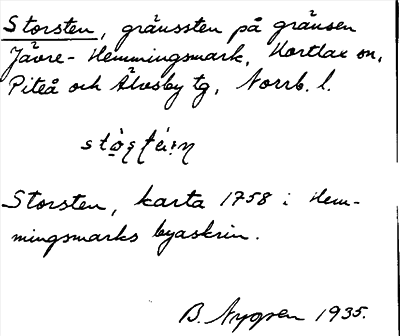 Storsten, gränssten på gränsen
Jävre - Hemmingsmark, Hortlax sn,
Piteå och Älvsby tg, Norrb. l.
Storsten, karta 1758 i Hem-
mingsmarks byaskrin.
B. Nygren 1935.